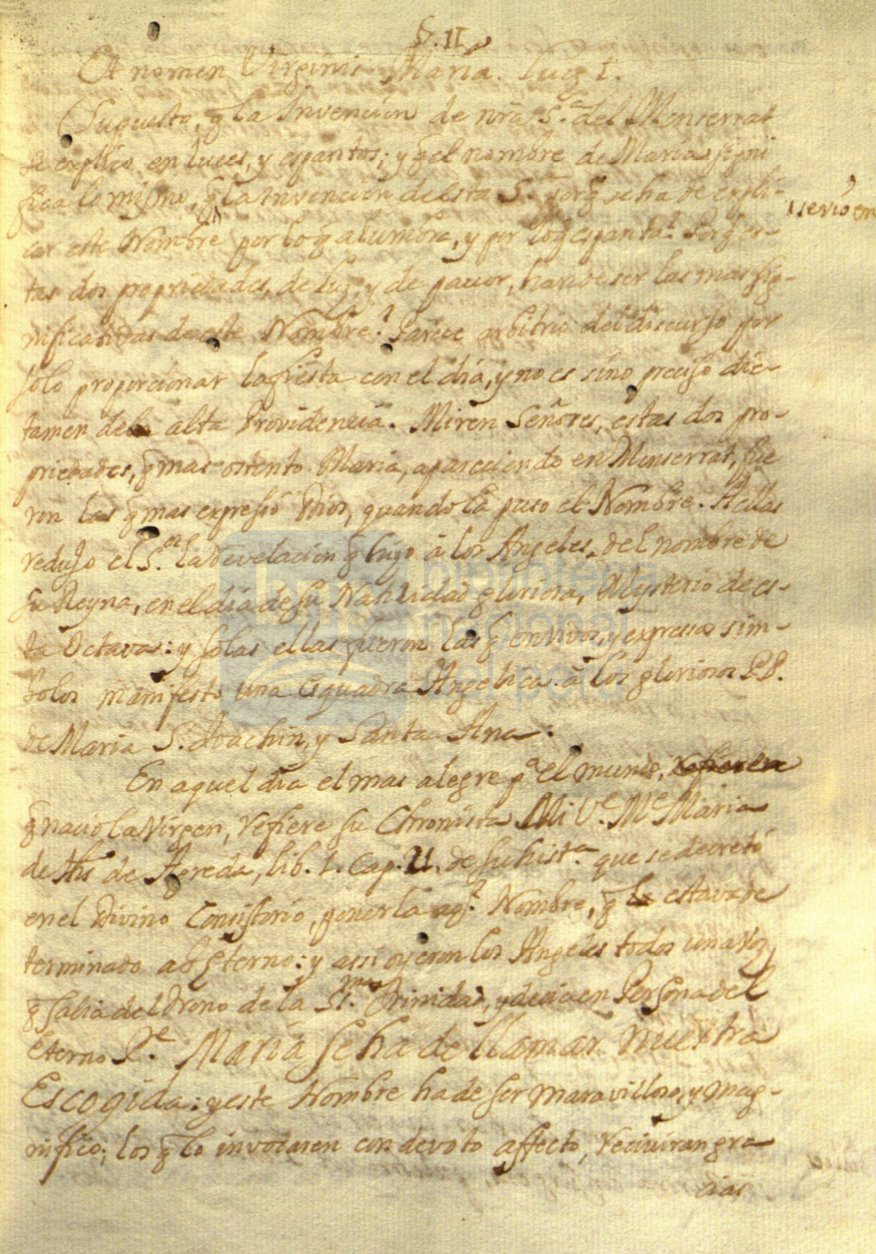 §. II.
Et nomen Virginis Maria. Luc. 1.
Supuesto, q̃ la Invencion de nrã S.ª del Monserrat
se explico en luces, y espantos; y q̃ el nombre de Maria signi
fica lo mismo, q̃ la Invencion de esta S.ª porq̃ se ha de expli-
car este Nombre por lo q̃ alumbra, y por lo q̃ espanta? Porq̃ es-
tas dos propriedades, de luz, y de pavor, han de ser las mas sig-
nificativas de este Nombre? Parece arbitrio del discurso por
solo proporcionar la fiesta con el dia, y no es sino preciso dic-
tamen de la alta Providencia. Miren Señores, estas dos pro-
priedades, q̃ mas ostento Maria, apareciendo en Monserrat, fue
ron las q̃ mas expressó Dios, quando la puso el Nombre. A ellas
redujo el S.or la Revelacion q̃ hizo à los Angeles, del nombre de
su Reyna, en el dia de su Natividad gloriosa, Mysterio de es-
ta Octava: y solas ellas fueron las q̃ en vivos, y expressos sim-
bolos manifesto una Esquadra Angelica à los gloriosos PP.
de Maria S. Joachin, y Santa Ana.
En aquel dia el mas alegre p.ª el mundo,
q̃ nacio la Virgen, refiere su Chronista Mi V.e M.e Maria
de Jhs de Agreda, lib. 1. Cap. 21. de su hist.ª que se decretó
en el Divino Consistorio, poner la aq.l Nombre, q̃ le estava de
terminado ab Eterno: y assi oyeron los Angeles todos una voz,
q̃ salia del Trono de la SS.ma Trinidad, y decia en Persona del
Eterno P.e Maria se ha de llamar nuestra
Escogida: y este Nombre ha de ser maravilloso, y mag-
nifico; los q̃ lo invocaren con devoto affecto, reciviran gra
cias